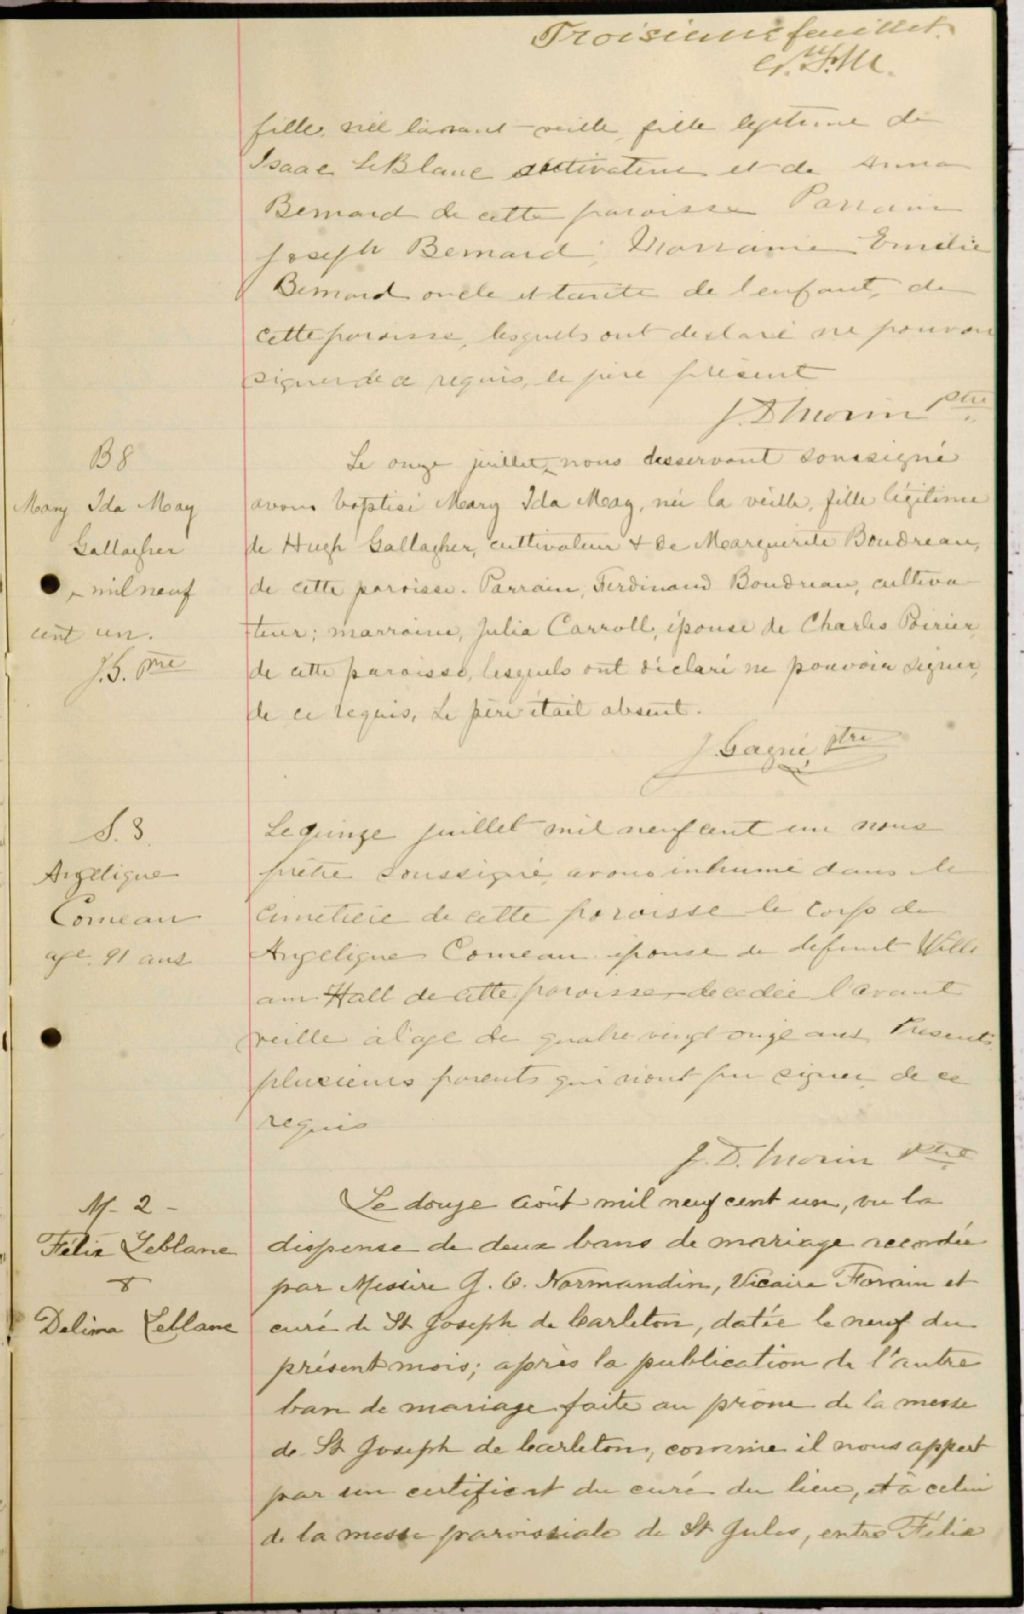 Troisième feuillet.
fille née l'avant-veille, fille legitime de
Isaac LeBlanc cultivateur et de Anna
Bernard de cette paroisse Parrain
Joseph Bernard, Marraine Emilie
Bernard oncle et tante de l'enfant, de
cette paroisse, lesquels ont declaré ne pouvoir
signer de ce requis, le père présent
J. D. Morin ptre
B 8
Mary Ida May
Gallagher
mil neuf
cent un.
J.G. ptre
Le onze juillet, nous desservant soussigné
avons baptisé Mary Ida May, née la veille, fille légitime
de Hugh Gallagher, cultivateur & de Marguerite Boudreau,
de cette paroisse. Parrain, Ferdinand Boudreau, cultiva-
teur; marraine, Julia Carroll, épouse de Charles Poirier,
de cette paroisse, lesquels ont déclaré ne pouvoir signer,
de ce requis. Le père était absent.
J. Gagné, ptre
S. 3
Angelique
Comeau
age 91 ans
Le quinze juillet mil neuf cent un nous
prêtre soussigné, avons inhumé dans le
cimetière de cette paroisse le corps de
Angelique Comeau épouse de defunt Willi
am Hall de cette paroisse decedée l'avant
veille à l'age de quatre vingt onze ans Presents
plusieurs parents qui n'ont pu signer de ce
requis
J. D. Morin ptre
M - 2 -
Félix Leblanc
&
Delima Leblanc
Le douze Août mil neuf cent un, vu la
dispense de deux bans de mariage accordée
par Messire J. O. Normandin, Vicaire Forain et
curé de St Joseph de Carleton, datée le neuf du
présent mois; après la publication de l'autre
ban de mariage faite au prône de la messe
de St Joseph de Carleton, comme il nous appert
par un certificat du curé du lieu, et à celui
de la messe paroissiale de St Jules, entre Félix